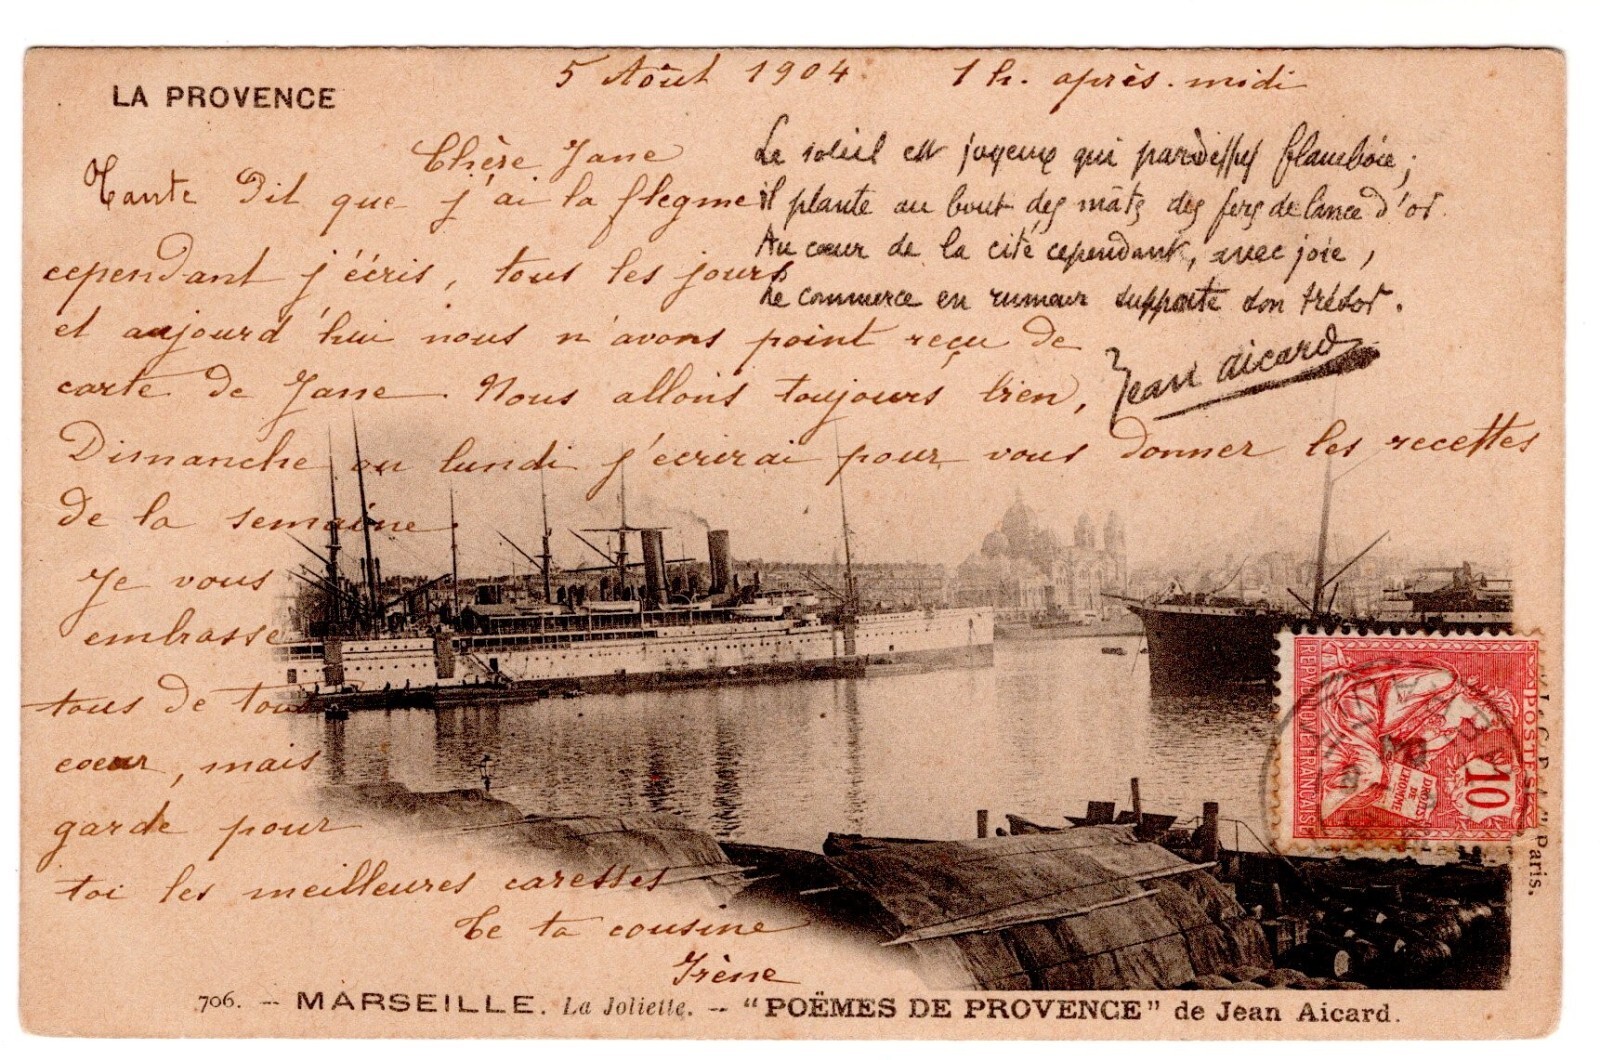 LA PROVENCE
5 Août 1904. 1 h. après-midi
Chère Jane
Tante Dit que j'ai la flegme
cependant j'écris, tous les jours
et aujourd'hui nous n'avons point reçu de
carte de Jane. Nous allons toujours bien,
Dimanche ou lundi j'écrirai pour vous donner les recettes
de la semaine.
Je vous
embrasse
tous de tout
coeur, mais
garde pour
toi les meilleures caresses
De ta cousine
Irène
Le soleil est joyeux qui pardessus flamboie;
il plante au bout des mâts des fers de lance d'or.
Au cœur de la cité cependant, avec joie,
Le commerce en rumeur supporte son trésor.
Jean Aicard
REPVBLIQVE FRANÇAISE
POSTES
DROITS
DE
L'HOMME
10
Paris.
706. -- MARSEILLE. La Joliette. -- "POËMES DE PROVENCE" de Jean Aicard.